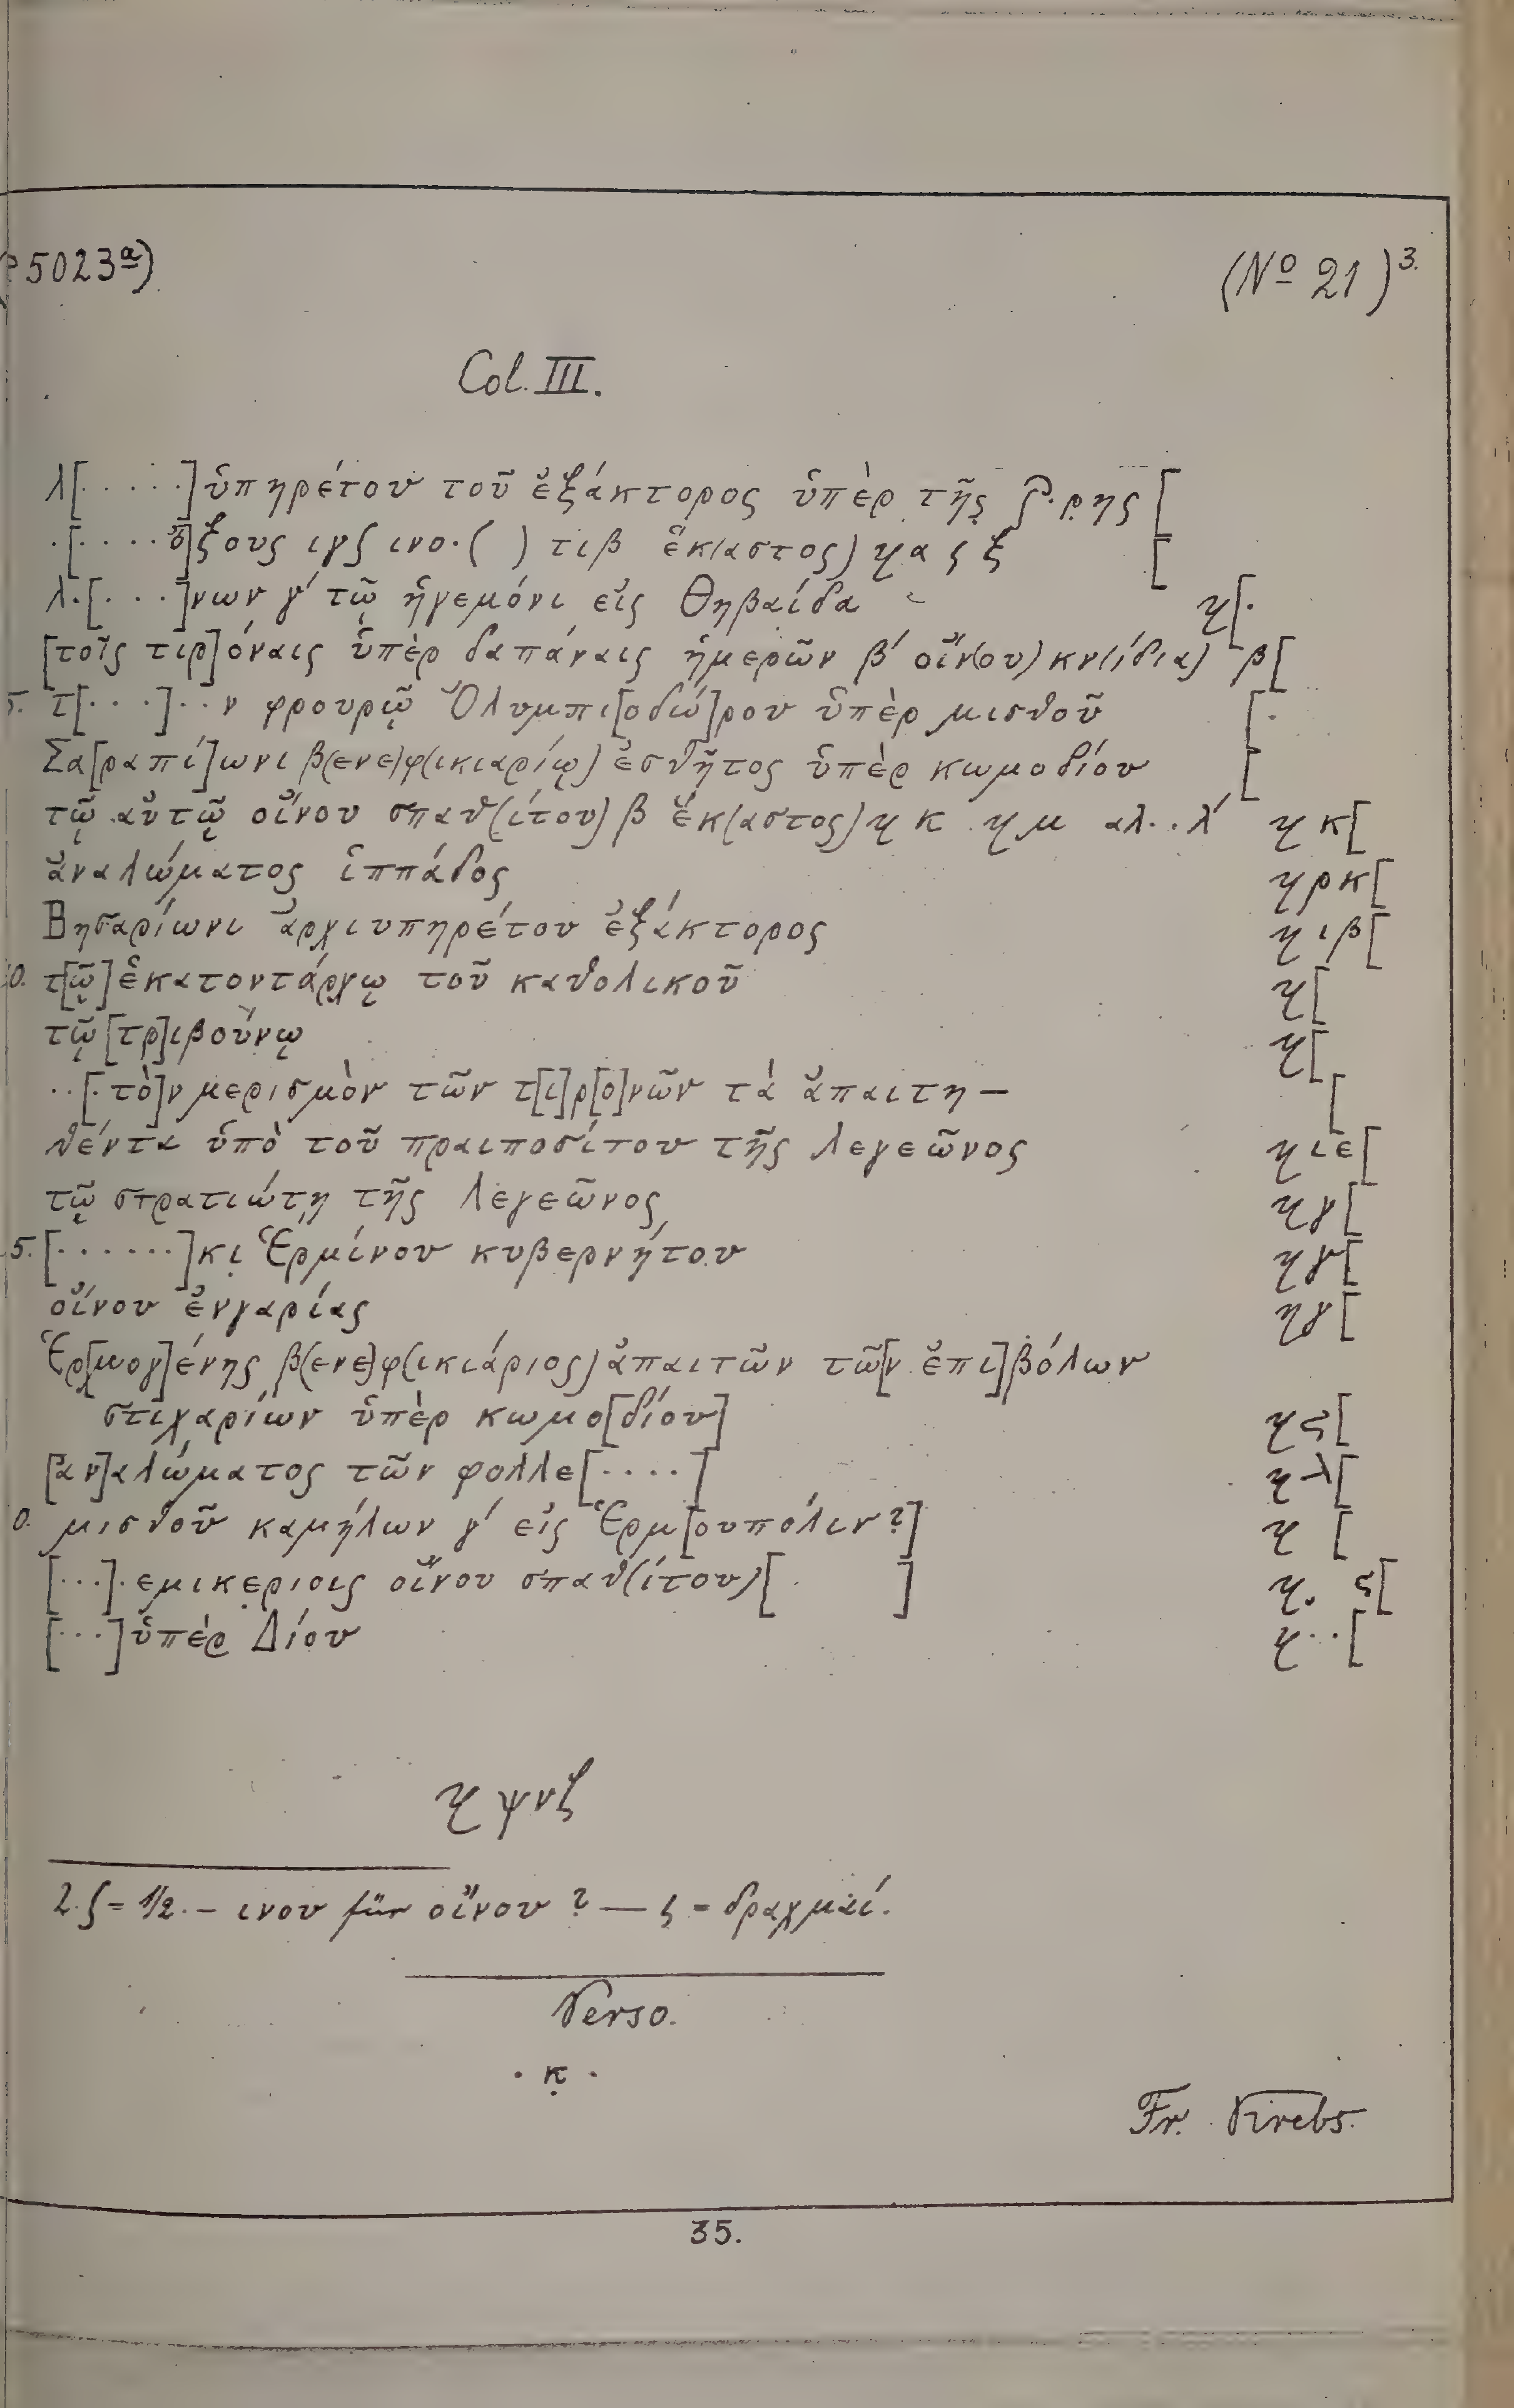 5023ª)
(Nº 21)³·
Col. III.
λ[·····]ὑπηρέτου τοῦ ἐξάκτορος ὑπὲρ τῆς ρης [
·[····ὄ]ξους ιγʃ ινο·( ) τιβ ἑκ(αστος) ϗ α ς ξ [
λ·[···]νων γ´ τῷ ἡγεμόνι εἰς Θηβαίδα ϗ[·
[τοῖς τιρ]όναις ὑπὲρ δαπάναις ἡμερῶν β´ οἴν(ου) κν(ίδια) β[
5. τ[···]··ν φρουρῷ Ὀλυμπι[οδώ]ρου ὑπὲρ μισθοῦ [·
Σα[ραπί]ωνι β(ενε)φ(ικιαρίῳ) ἐσθῆτος ὑπὲρ κωμοδίου [
τῷ αὐτῷ οἴνου σπαθ(ίτου) β ἑκ(αστος) ϗ κ ϗ μ αλ··λ´ ϗ κ[
ἀναλώματος ἱππάδος ϗ ρκ[
Βησαρίωνι ἀρχιυπηρέτου ἐξάκτορος ϗ ιβ[
0. τ[ῷ] ἑκατοντάρχῳ τοῦ καθολικοῦ ϗ[
τῷ [τρ]ιβούνῳ ϗ[
··[·τὸ]ν μερισμὸν τῶν τ[ι]ρ[ό]νῶν τὰ ἀπαιτη— [
θέντα ὑπὸ τοῦ πραιποσίτου τῆς λεγεῶνος ϗ ιε[
τῷ στρατιώτῃ τῆς λεγεῶνος ϗ γ[
5. [······]κι Ἑρμίνου κυβερνήτου ϗ γ[
οἴνου ἐνγαρίας ϗ γ[
Ἑρ[μογ]ένης β(ενε)φ(ικιάριος) ἀπαιτῶν τῶ[ν ἐπι]βόλων
στιχαρίων ὑπὲρ κωμο[δίου] ϗ ς[
[ἀν]αλώματος τῶν φολλε[····] ϗ λ[
0. μισθοῦ καμήλων γ´ εἰς Ἑρμ[ουπόλιν?] ϗ [
[···]·εμικεριοις οἴνου σπαθ(ίτου)[ ] ϗ· ς[
[···] ὑπὲρ Δίου ϗ··[
ϗ ψνζ
2. ʃ = 1/2. – ινου für οἴνου ? — ς = δραχμαί.
Verso.
· κ̣ ·
Fr. Krebs.
35.